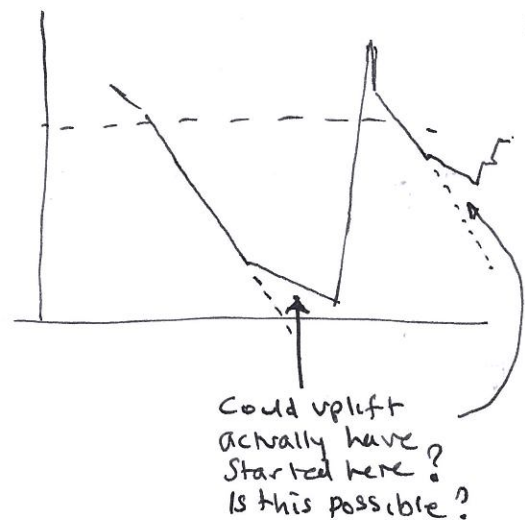 Could uplift
actually have
started here?
Is this possible?